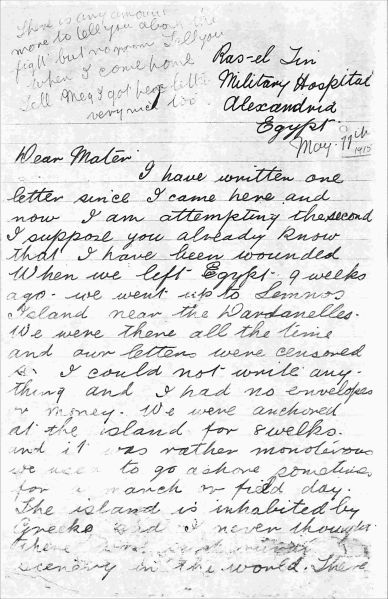 There is any amount
more to tell you about the
fight but no room. Tell you
when I come home
Tell Meg I got her letter
very nice too.
Ras-el Tin
Military Hospital
Alexandria
Egypt.
May. 11th
1915
Dear Mater
I have written one
letter since I came here and
now I am attempting the second
I suppose you already know
that I have been wounded
When we left Egypt 9 weeks
ago. we went up to Lemnos
Island near the Dardanelles.
We were there all the time
and our letters were censored
so I could not write any-
thing and I had no envelopes
or money. We were anchored
at the island for 8 weeks.
and it was rather monotonous
we used to go ashore sometimes
for a march or field day.
The island is inhabited by
Greeks and I never thought
there was such
scenery in the world. There